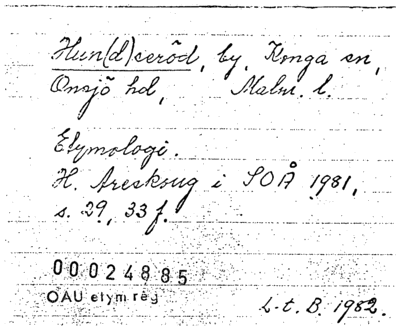 Hun(d)seröd, by, Konga sn,
Onsjö hd, Malm. l.
Etymologi.
H. Areskoug i SOÅ 1981,
s. 29, 33 f.
00024885
OAU etym reg
L-t. B. 1982.